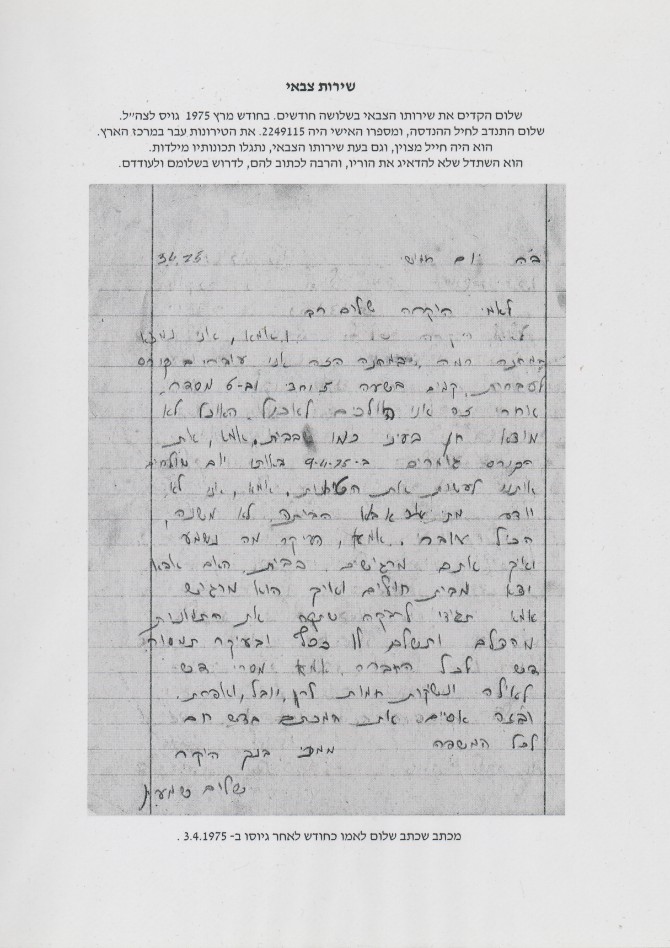 שירות צבאי
שלום הקדים את שירותו הצבאי בשלושה חודשים. בחודש מרץ 1975 גויס לצה״ל.
שלום התנדב לחיל ההנדסה, ומספרו האישי היה 2249115. את הטירונות עבר במרכז הארץ.
הוא היה חייל מצוין, וגם בעת שירותו הצבאי, נתגלו תכונותיו מילדות.
הוא השתדל שלא להדאיג את הוריו, והרבה לכתוב להם, לדרוש בשלומם ולעודדם.
ב"ה יום חמישי 3.4.75
לאמי היקרה שלום רב
אמא, אני נמצא
במחנה הזה אני עוברים קורס
קמים בשעה 5 וחצי וב-6 מסדר.
אחרי זה אני הולכים לאכול. האוכל לא
מוצא חן בעיני כמו שבבית. אמא, את
הקורס גומרים ב-9.4.75 באותו יום שולחים
אותנו לעשות את הטירונות, אמא, אני לא
יודע מתי אבא הביתה לא משנה,
הכול עובר. אמא, העיקר מה נשמע
ואיך אתם מרגישים בבית האם אבא
יצא מבית חולים ואיך הוא מרגיש
אמא תגידי שתקח את התמונות
מהצלם ותשלם לו כסף ובעיקר תמסור
דש לכל החברה. אמא מסרי דש
לאילה ונשיקות חמות לרן, יובל, ואפרת.
ובזה אסיים את המכתב בדש חם
לכל המשפחה
ממני בנך היקר
שלום
מכתב שכתב שלום לאמו כחודש לאחר גיוסו ב- 3.4.1975 .